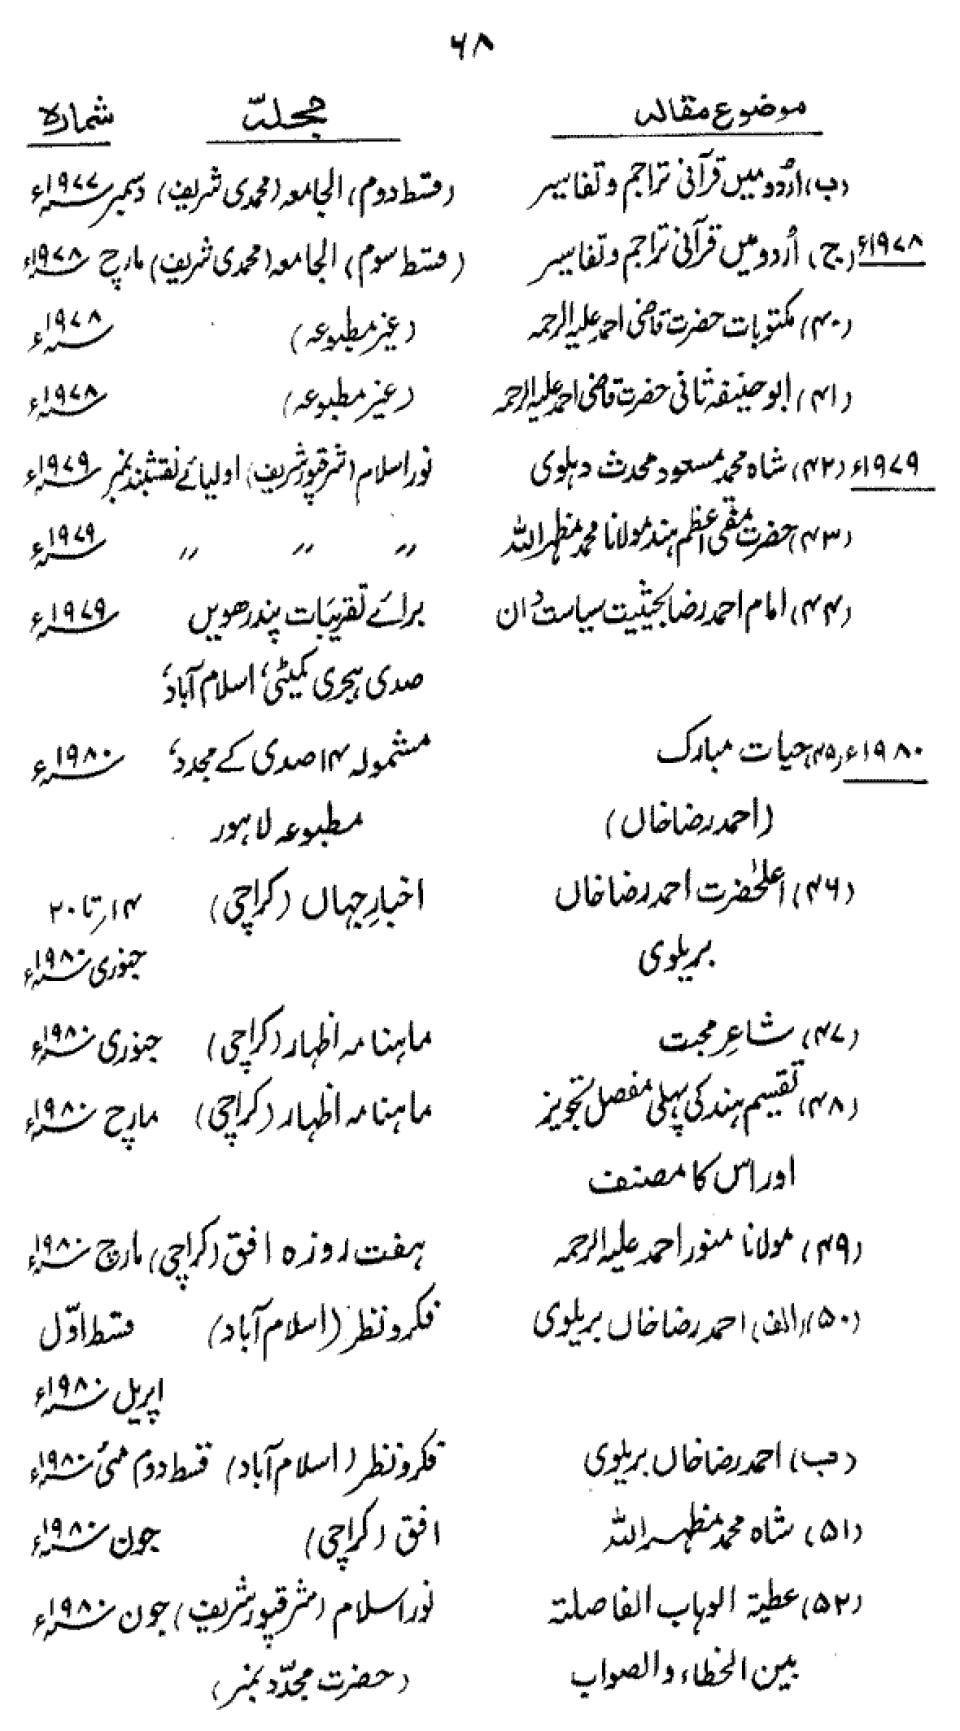 ۶۸
موضوع مقالہ مجلّہ شمارہ
(ب) اُردو میں قرآنی تراجم و تفاسیر (قسط دوم) الجامعہ (محمدی شریف) دسمبر ۱۹۷۷ء
۱۹۷۸ء (ج) اُردو میں قرآنی تراجم و تفاسیر (قسط سوم) الجامعہ (محمدی شریف) مارچ ۱۹۷۸ء
(۴۰) مکتوبات حضرت قاضی احمد علیہ الرحمہ (غیر مطبوعہ) ۱۹۷۸ء
(۴۱) ابو حنیفہ ثانی حضرت قاضی احمد علیہ الرحمہ (غیر مطبوعہ) ۱۹۷۸ء
۱۹۷۹ء (۴۲) شاہ محمد مسعود محدث دہلوی نور اسلام (شرقپور شریف) اولیائے نقشبند نمبر ۱۹۷۹ء
(۴۳) حضرت مفتی اعظم ہند مولانا محمد مظہر اللہ 〃 〃 〃 ۱۹۷۹ء
(۴۴) امام احمد رضا بحیثیت سیاست دان برائے تقریبات پندرھویں ۱۹۷۹ء
صدی ہجری کمیٹی، اسلام آباد،
۱۹۸۰ء (۴۵) حیات مبارک مشمولہ ۱۴ صدی کے مجدد، ۱۹۸۰ء
(احمد رضا خاں) مطبوعہ لاہور
(۴۶) اعلیٰحضرت احمد رضا خاں اخبارِ جہاں (کراچی) ۱۴ تا ۲۰
بریلوی جنوری ۱۹۸۰ء
(۴۷) شاعرِ محبت ماہنامہ اظہار (کراچی) جنوری ۱۹۸۰ء
(۴۸) تقسیم ہند کی پہلی مفصل تجویز ماہنامہ اظہار (کراچی) مارچ ۱۹۸۰ء
اور اس کا مصنف
(۴۹) مولانا منور احمد علیہ الرحمہ ہفت روزہ افق (کراچی) مارچ ۱۹۸۰ء
(۵۰) (الف) احمد رضا خاں بریلوی فکر و نظر (اسلام آباد) قسط اوّل
اپریل ۱۹۸۰ء
(ب) احمد رضا خاں بریلوی فکر و نظر (اسلام آباد) قسط دوم مئی ۱۹۸۰ء
(۵۱) شاہ محمد مظہر اللہ افق (کراچی) جون ۱۹۸۰ء
(۵۲) عطیۃ الوہاب الفاصلتہ نور اسلام (شرقپور شریف) جون ۱۹۸۰ء
بین الخطاء والصواب (حضرت مجدّد نمبر)